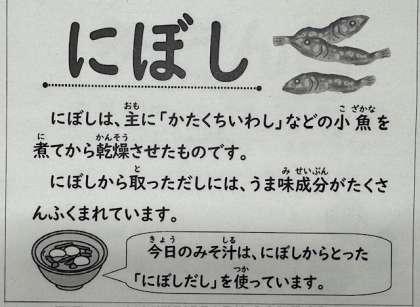 にぼし
にぼしは、主に「かたくちいわし」などの小魚を
煮てから乾燥させたものです。
にぼしから取っただしには、うま味成分がたくさ
んふくまれています。
今日のみそ汁は、にぼしからとった
「にぼしだし」を使っています。